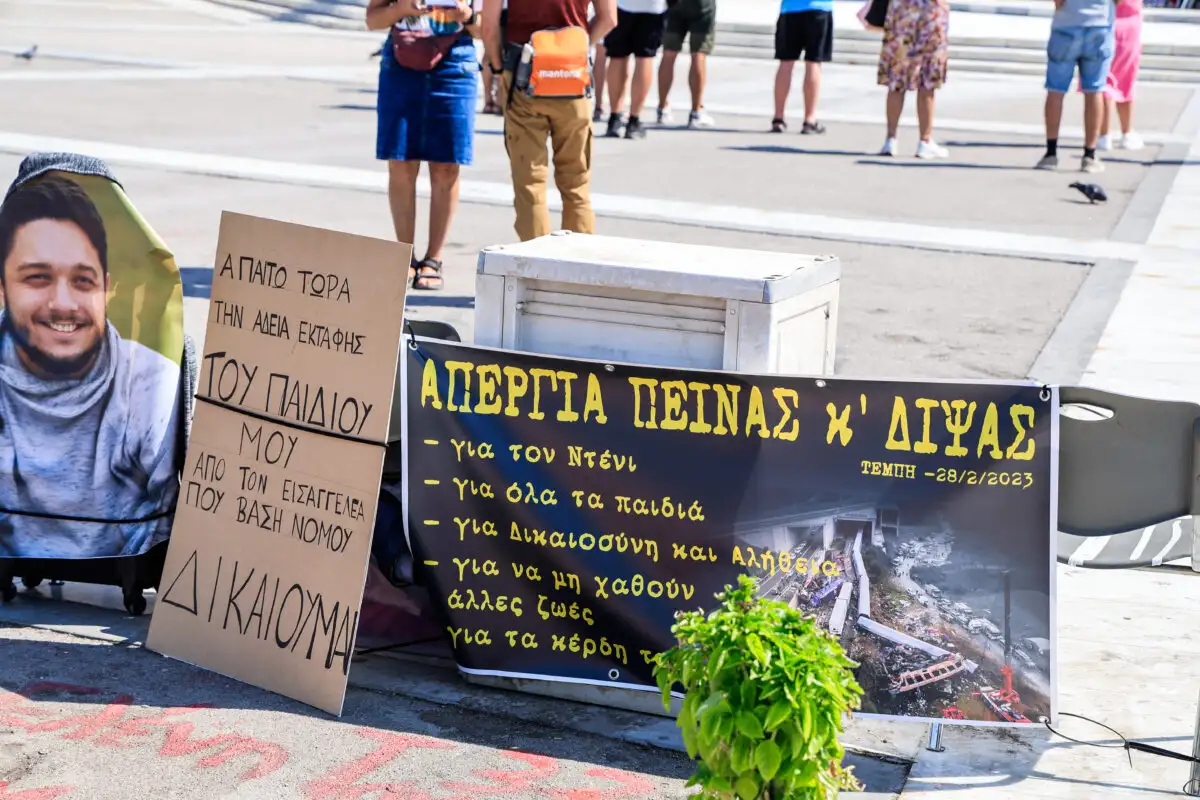 mammut
ΑΠΑΙΤΩ ΤΩΡΑ
ΤΗΝ ΑΔΕΙΑ ΕΚΤΑΦΗΣ
ΤΟΥ ΠΑΙΔΙΟΥ
ΜΟΥ
ΑΠΟ ΤΟΝ ΕΙΣΑΓΓΕΛΕΑ
ΠΟΥ ΒΑΣΗ ΝΟΜΟΥ
ΔΙΚΑΙΟΥΜΑΙ
ΑΠΕΡΓΙΑ ΠΕΙΝΑΣ κ' ΔΙΨΑΣ
ΤΕΜΠΗ -28/2/2023
- για τον Ντένι
- για όλα τα παιδιά
- για Δικαιοσύνη και Αλήθεια
- για να μη χαθούν
άλλες ζωές
για τα κέρδη